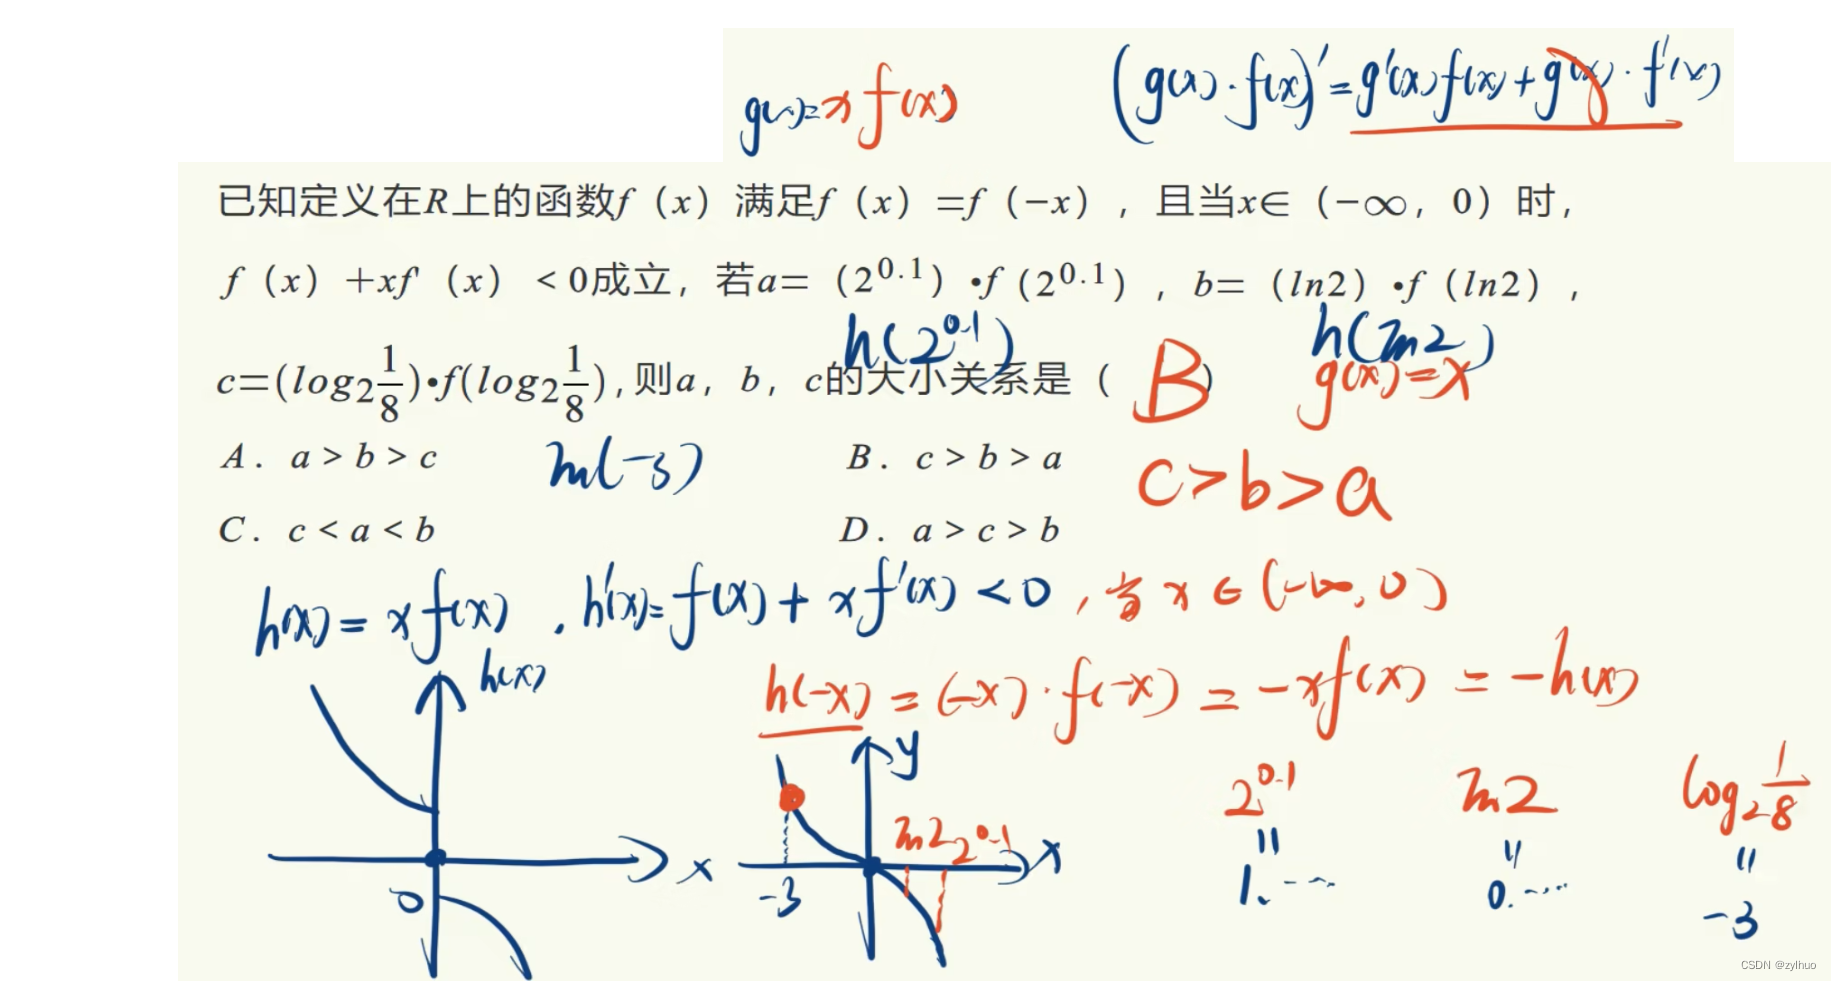 g(x)=x f(x)
(g(x)·f(x))'=g'(x)f(x)+g(x)·f'(x)
已知定义在R上的函数f（x）满足f（x）=f（-x），且当x∈（-∞，0）时，
f（x）+xf'（x）<0成立，若a=（2^0.1）•f（2^0.1），b=（ln2）•f（ln2），
h(2^0.1) h(ln2)
c=(log2 1/8)•f(log2 1/8),则a，b，c的大小关系是（B）
g(x)=x
A．a>b>c
B．c>b>a
h(-3)
c>b>a
C．c<a<b
D．a>c>b
h(x)=xf(x)，h'(x)=f(x)+xf'(x)<0，当x∈(-∞,0)
h(x)
h(-x)=(-x)·f(-x)=-xf(x)=-h(x)
x
0
y
-3
ln2 2^0.1
x
2^0.1 ln2 log2 1/8
= = =
1.···· 0.···· -3
CSDN @zylhuo